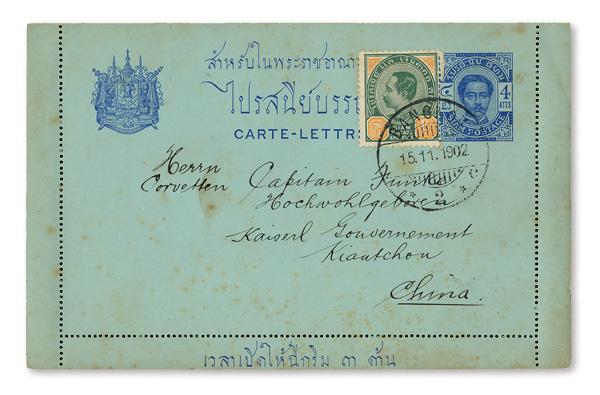 สำหรับในพระราชอาณา
ไปรสนียบรรณ
CARTE-LETTRE
4
ATTS
SIAM POSTAGE
SIAM
BANGKOK
15.11.1902
2
Herrn
Corvetten Capitain Funke
Hochwohlgeboren
Kaiserl Gouvernement
Kiautchou
China.
เวลาเปิดให้ฉีกริม ๓ ด้าน